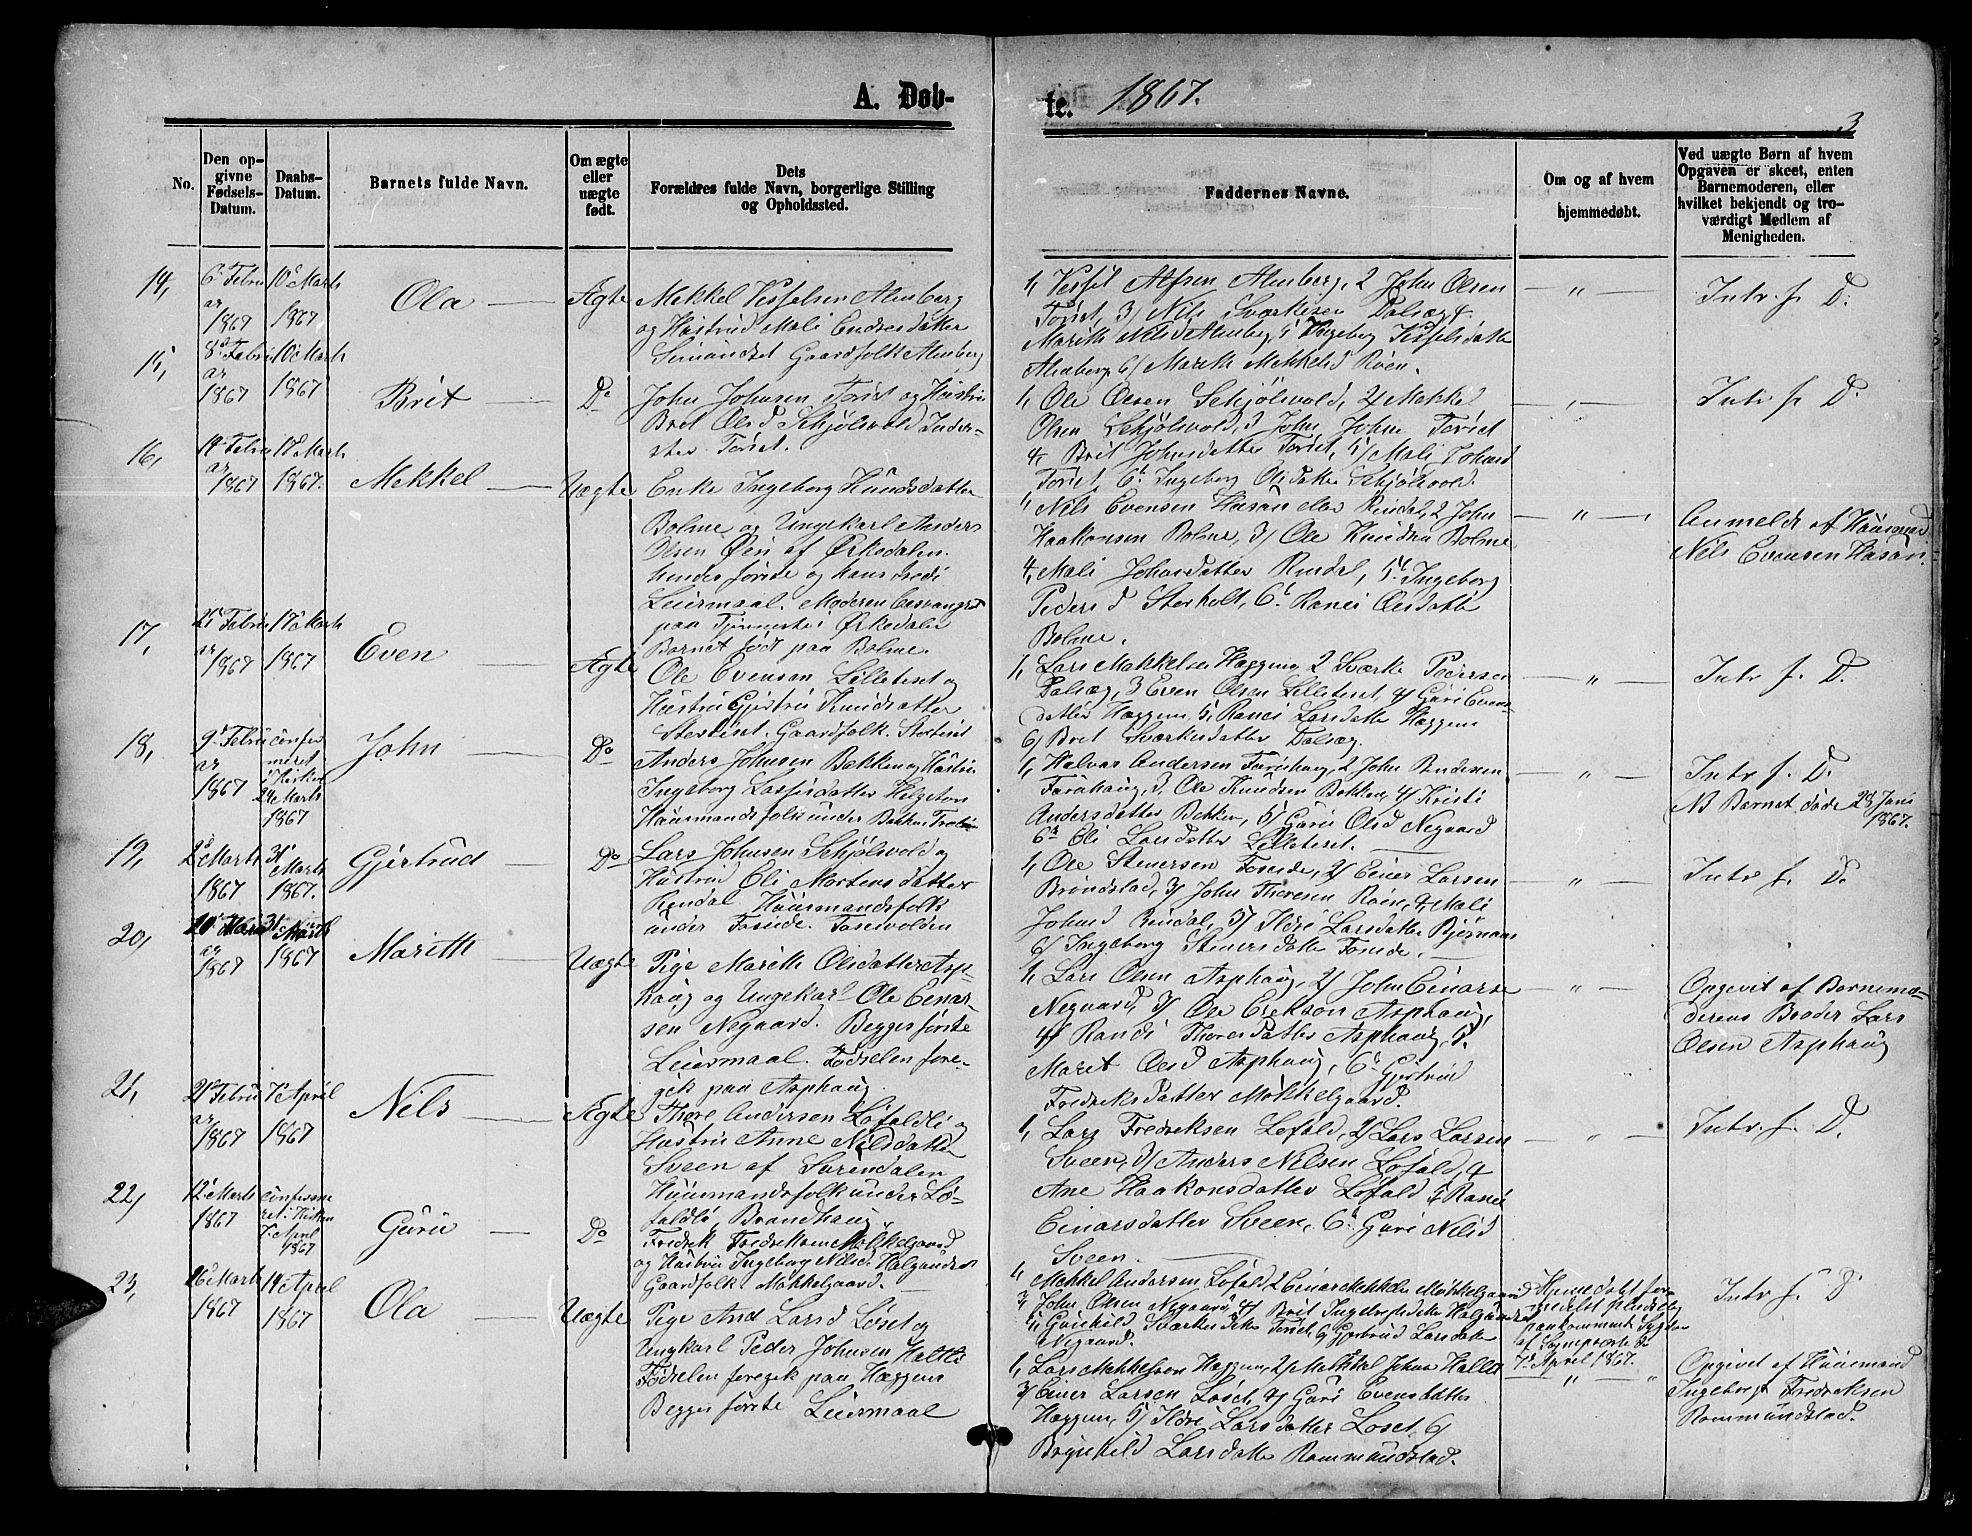 A. Døb-
te. 1867.
3
No.
Den op-
givne
Fødsels-
Datum.
Daabs-
Datum.
Barnets fulde Navn.
Om ægte
eller
uægte
født.
Dets
Forældres fulde Navn, borgerlige Stilling
og Opholdssted.
Faddernes Navne.
Om og af hvem
hjemmedøbt.
Ved uægte Børn af hvem
Opgaven er skeet, enten
Barnemoderen, eller
hvilket bekjendt og tro-
værdigt Medlem af
Menigheden.
14,
6. Febru
ar
1867
10 Marts
1867
Ola
Ægte
Mekkel Vesselsen Almberg
og Hustru Mali Endresdatter
Simundset Gaardfolk Almberg
1, Vessel Alfsen Almberg, 2 John Olsen
Toriset, 3/ Nils Sværkesen Dalsæg 4
Marith Nilsd Almberg, 5 Ingeborg Vesselsdatter
Almberg, 6/ Marith Mekkelsd Røen.
Intr. f. D.
15,
8. Febru
ar
1867
10 Marts
1867
Brit
Do
John Johnsen Toriset og Hustru
Bret Olsd Skjølsvold Inder-
ster Toriset.
1, Ole Olsen Skjølsvold, 2/ Mekkel
Olsen Skjølsvold, 3 John Johns Toriset
4, Brit Johnsdatter Toriset, 5/ Mali Johnsd
Toriset, 6. Ingeborg Olsdatter Skjølsvold.
Intr f. D.
16,
14. Febru
ar
1867
17 Marts
1867.
Mekkel
Uægte
Enke Ingeborg Knudsdatter
Bolme og Ungekarl Anders
Olsen Øien af Ørkedalen.
hendes første og hans tredie
Leiermaal. Moderen besvangret
paa Tjeneste i Ørkedalen
Barnet født paa Bolme.
1, Nils Evensen Hasan eller Rindal, 2 John
Haakonsen Bolme, 3/ Ole Knudsen Bolme
4, Mali Johnsdatter Rindal, 5. Ingeborg
Peders D Storholt, 6. Ranei Olsdatter
Bolme.
Anmeldt af Huusmand
Nils Evensen Hasan
17,
21 Febru
ar
1867
17 Marts
1867
Even
Ægte
Ole Evensen Lilleteset og
Hustru Gjertru Knudsdatter
Storteset. Gaardfolk. Storteset
1, Lars Mekkelsen Heggem, 2 Sværke Pedersen
Dalsæg, 3 Even Olsen Lilleteset, 4/ Guri Evens-
datter Heggem, 5, Ranei Larsdatter Heggem
6/ Bret Sværkesdatter Dalsæg.
Intr f. D.
18,
9. Febru
ar
1867
confir
meret
i Kirken
24 Marts
1867
John
Do
Anders Johnsen Bakken og Hustru
Ingeborg Lassesdatter Helgeton
Huusmandsfolk under Bakken
1, Halvar Andersen Furuhaug, 2 John Andersen
Furuhaug, 3. Ole Knudsen Bakken, 4/ Kristi
Andersdatter Bakken, 5/ Guri Olsd Negaard
6. Eli Larsdatter Lilleteset.
Intr f. D.
NB Barnet døde 28 Juni
1867.
19,
2. Marts
1867
31
Marts
1867.
Gjertrud
Do
Lars Johnsen Skjølsvold og
Hustrud Eli Mortensdatter
Rindal Huusmandsfolk
under Foseide. Foseivolden
1, Ole Steversen Foseide, 2/ Einer Larsen
Brøndstad, 3/ John Thoresen Røen, 4, Mali
Johnsd Rindal, 5/ Ildri Larsdatter Bjørnaas
6/ Ingeborg Steversdatter Foseide.
Intr. f. D.
20,
ar
1867
31
Marts
1867
Marith
Uægte
Pige Marith Olsdatter Asp-
haug og Ungekarl Ole Einar-
sen Negaard. Begges første
Leiermaal. Fødselen fore-
gik paa Asphaug.
1, Lars Olsen Asphaug, 2/ John Einarse
Negaard, 3/ Ole Erikson Asphaug,
4/ Randi Thoresdatter Asphaug, 5.
Maret Olsd Asphaug, 6. Gjertrud
Fredriksdatter Møkkelgaard.
Opgivet af Barnemo-
derens Broder Lars
Olsen Asphaug
21,
21 Febru
ar
1867
7. April
1867
Nils
Ægte
Thore Andersen Løfaldli og
Hustru Anne Nilsdatter
Sveen af Surendalen
Huusmandsfolk under Lø-
faldli, Brandhaug.
1, Lars Fredriksen Løfald, 2/ Lars Larsen
Sveen, 3/ Anders Nilsen Løfald, 4
Ane Haakonsdatter Løfald, 5 Ranei
Einarsdatter Sveen, 6. Guri Nilsd
Sveen.
Intr. f. D.
22,
12. Marts
1867
confirme
ret i Kirken
7. April
1867
Guru
Do
Fredrik Fredriksen Møkkelgaard
og Hustru Ingeborg Nilsd. Halgunset
Gaardfolk Møkkelgaard.
1, Mekkel Andersen Løfald, 2 Einar Mekkelsen Møkkelgaard
3, John Olsen Negaard, 4/ Brit Ingebregtsdatter Halgunset
5, Gunhild Sværkesdatter Toriset, 6, Gjertrud Larsdatter
Negaard.
Hjemmedøbt for-
medelst pludselig
paakommende Sygdom
af
7. April 1867.
Intr f. D
23,
26 Marts
1867
14 April
1867
Ola
Uægte
Pige Ane Larsd Løset og
Ungkarl Peder Johnsen Halle
Fødselen foregik paa Heggem
Begges første Leiermaal
1, Lars Mekkelsen Heggem, 2/ Mekkel Johns Halle
3/ Einer Larsen Løset, 4/ Guri Evensdatter
Heggem, 5/ Ildri Larsdatter Løset, 6/
Brynhild Larsdatter Rommundstad.
Opgivet af Huusmand
Ingebregt Fredriksen
Rommundstad.